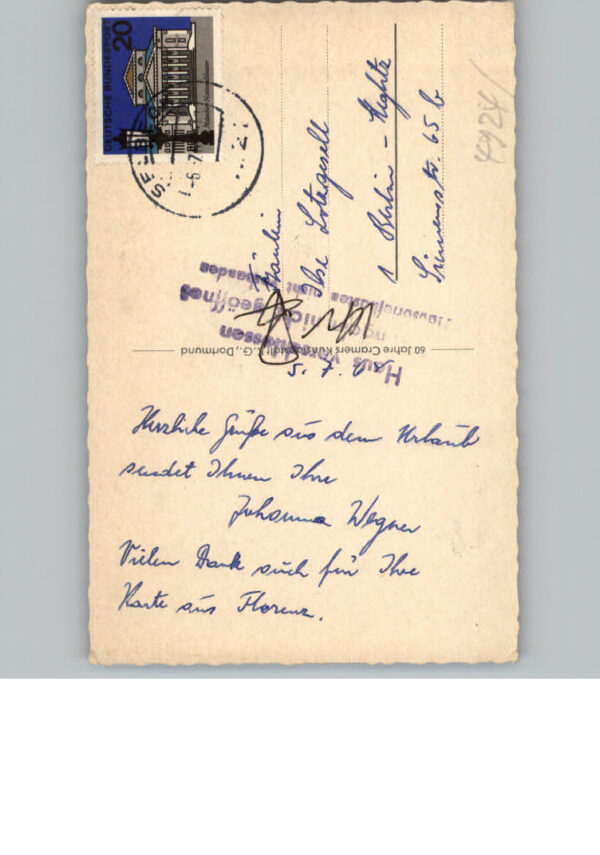 20
DEUTSCHE BUNDESPOST
Fräulein
Ilse
1 Berlin -
65 b
4924/
Haus verschlossen
nicht geöffnet
Hausbriefkasten
nicht
vorhanden
60 Jahre Cramers Kunstanstalt K.G., Dortmund
5. 7. 6
Herzliche Grüße aus dem Urlaub
sendet Ihnen Ihre
Johanna Wegner
Vielen Dank auch für Ihre
Karte aus Florenz.